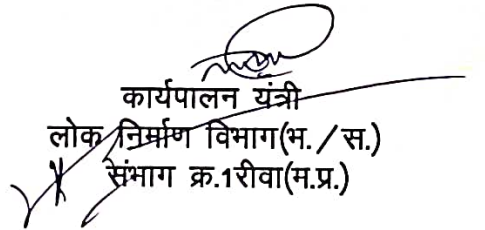 कार्यपालन यंत्री
लोक निर्माण विभाग(भ./स.)
संभाग क्र.1रीवा(म.प्र.)